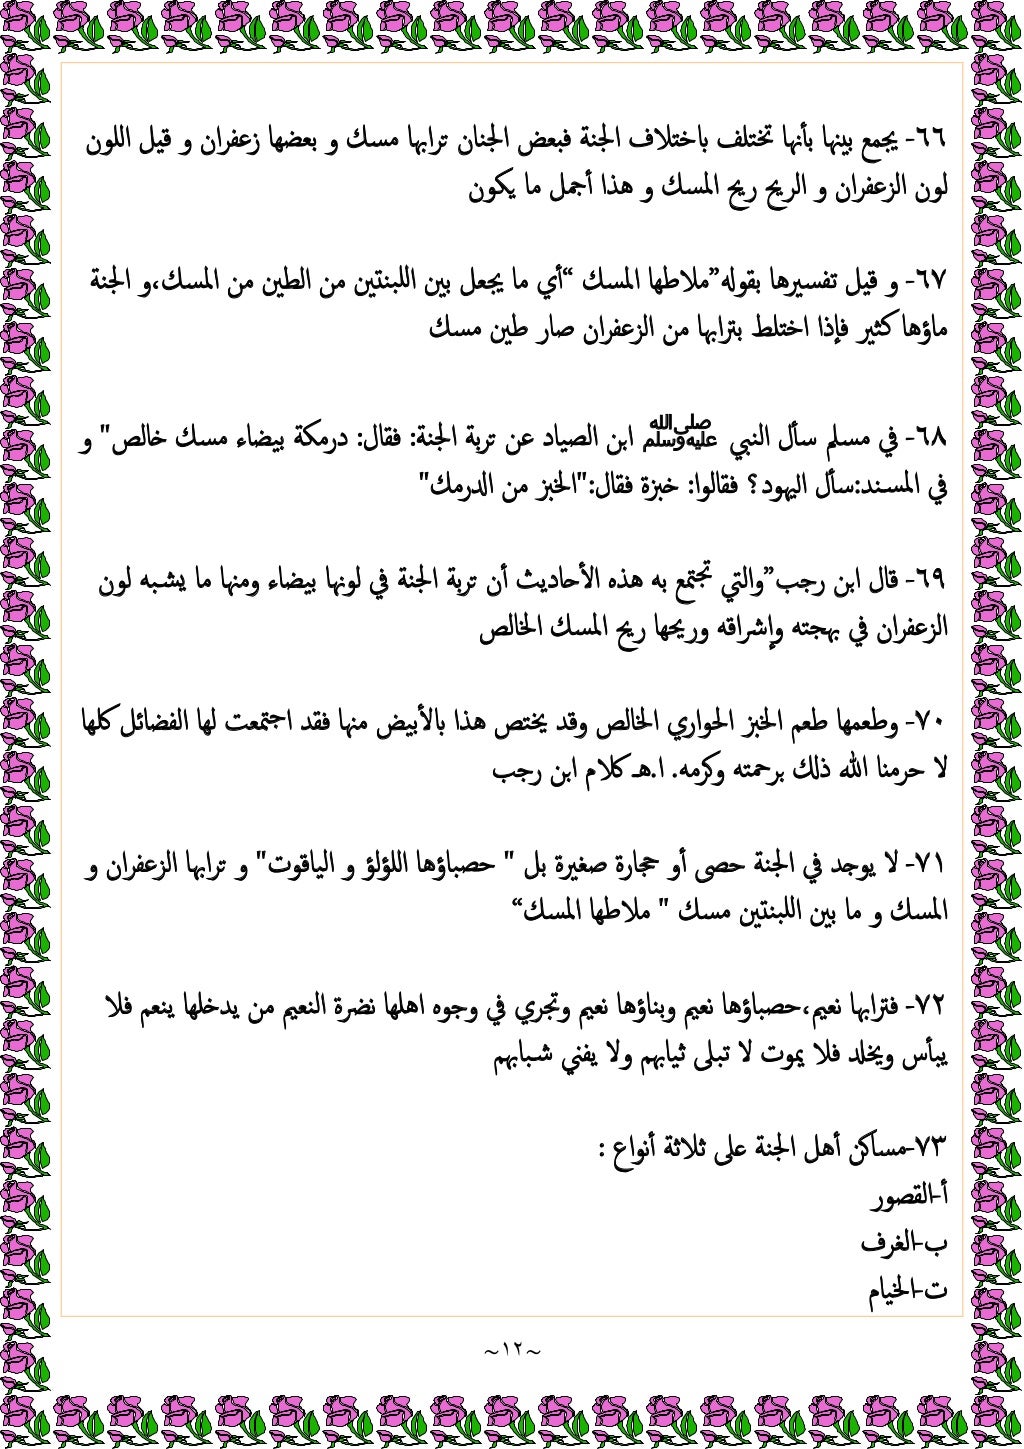 ٦٦- يجمع بينها بأنها تختلف باختلاف الجنة فبعض الجنان ترابها مسك و بعضها زعفران و قيل اللون
لون الزعفران و الريح ريح المسك و هذا أجمل ما يكون
٦٧- و قيل تفسيرها بقوله”ملاطها المسك “أي ما يجعل بين اللبنتين من الطين من المسك،و الجنة
ماؤها كثير فإذا اختلط بترابها من الزعفران صار طين مسك
٦٨- في مسلم سأل النبي ﷺ ابن الصياد عن تربة الجنة: فقال: درمكة بيضاء مسك خالص" و
في المسند:سأل اليهود؟ فقالوا: خبزة فقال:"الخبز من الدرمك"
٦٩- قال ابن رجب”والتي تجتمع به هذه الأحاديث أن تربة الجنة في لونها بيضاء ومنها ما يشبه لون
الزعفران في بهجته وإشراقه وريحها ريح المسك الخالص
٧٠- وطعمها طعم الخبز الحواري الخالص وقد يختص هذا بالأبيض منها فقد اجتمعت لها الفضائل كلها
لا حرمنا الله ذلك برحمته وكرمه. ا.هـ كلام ابن رجب
٧١- لا يوجد في الجنة حصى أو حجارة صغيرة بل " حصباؤها اللؤلؤ و الياقوت" و ترابها الزعفران و
المسك و ما بين اللبنتين مسك " ملاطها المسك“
٧٢- فترابها نعيم،حصباؤها نعيم وبناؤها نعيم وتجري في وجوه اهلها نضرة النعيم من يدخلها ينعم فلا
يبأس ويخلد فلا يموت لا تبلى ثيابهم ولا يفني شبابهم
٧٣-مساكن أهل الجنة على ثلاثة أنواع :
أ-القصور
ب-الغرف
ت-الخيام
~١٢~